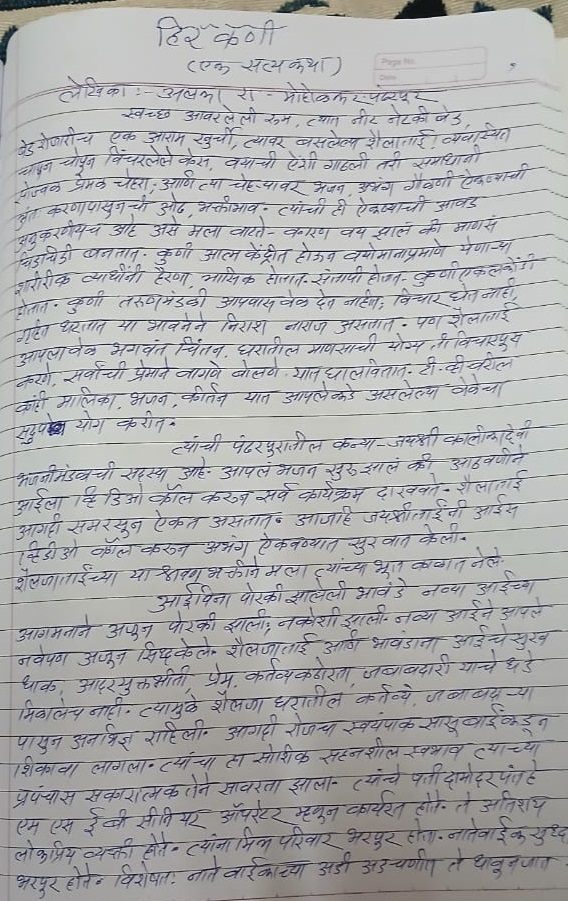 हिरकणी
Page No.
Date
(एक सत्य कथा)
लेखिका :- अलका रा - मोहोळकर पंढरपूर
स्वच्छ आवरलेली रूम, त्यात नीट नेटकी बेड,
बेड शेजारीच एक आराम खुर्ची, त्यावर बसलेल्या शैलाताई। व्यवस्थित
चापून चोपून विंचरलेले केस, वयाची ऐंशी गाठली तरी समाधानी
सोज्वळ प्रेमळ चेहरा, आणि त्या चेहऱ्यावर भजन, अभंग गौळणी ऐकण्याची
अंतःकरणापासुनची ओढ, भक्तीभाव. त्यांची ही ऐकण्याची आवड
अनुकरणीय आहे असे मला वाटते- कारण वय झालं की माणसं
चिडचिडी बनतात. कुणी आत्मकेंद्रीत होऊन वयोमानाप्रमाणे येणाऱ्या
शारीरीक व्याधींनी हैराण, मासिक होतात. संतापी होतात. कुणी एकलकोंडी
होतात. कुणी तरुणमंडळी आपणास वेळ देत नाहीत, विचार घेत नाही,
गृहीत धरतात या भावनेने निराश नाराज असतात. पण शैलाताई
आपला वेळ भगवंत चिंतन, घरातील माणसाची योग्य ती विचारपूस
करणे, सर्वांची प्रेमाने वागणे बोलणे यात घालवितात. टी.व्ही वरील
काही मालिका, भजन, कीर्तन यात आपलेकडे असलेल्या वेळेचा
सदुप योग करीत.
त्यांची पंढरपुरातील कन्या- जयश्री कालीकादेवी
भजनीमंडळाची सदस्य आहे. आपलं भजन सुरु झालं की आठवणीने
आईला व्हिडिओ कॉल करून सर्व कार्यक्रम दाखवते. शैलाताई
अगदी समरसून ऐकत असतात. आजही जयश्रीताईनी आईस
व्हिडीओ कॉल करुन अभंग ऐकवण्यात सुरवात केली.
शैलजाताईंच्या या श्रवण भक्तीने मला त्यांच्या भूत काळात नेले.
आईविना पोरकी झालेली भावंडे नव्या आईच्या
आगमनाने अजून पोरकी झाली, नकोशी झाली. नव्या आईने आपले
नवेपण अजून सिध्द केले. शैलजाताई आणि भावंडाना आईचे सुख
धाक, आदरयुक्तभीती प्रेम, कर्तव्यकठोरता जबाबदारी याचे धडे
मिळालेच नाही. त्यामुळे शैलजा घरातील कर्तव्ये, जबाबदाऱ्या
पासुन अनभिज्ञ राहिली. अगदी रोजचा स्वयंपाक सासूबाईंकडून
शिकावा लागला. त्यांचा हा सोशिक सहनशील स्वभाव त्यांच्या
प्रपंचास सकारात्मकतेने सावरता झाला. त्यांचे पती दामोदरपंत हे
एम एस ई बी सीनियर ऑपरेटर म्हणून कार्यरत होते. ते अतिशय
लोकप्रिय व्यक्ती होते. त्यांना मित्र परिवार भरपूर होता. नातेवाईक सुध्दा
भरपूर होते. विशेषतः नातेवाईकाच्या अडी अडचणीत ते धावून जात